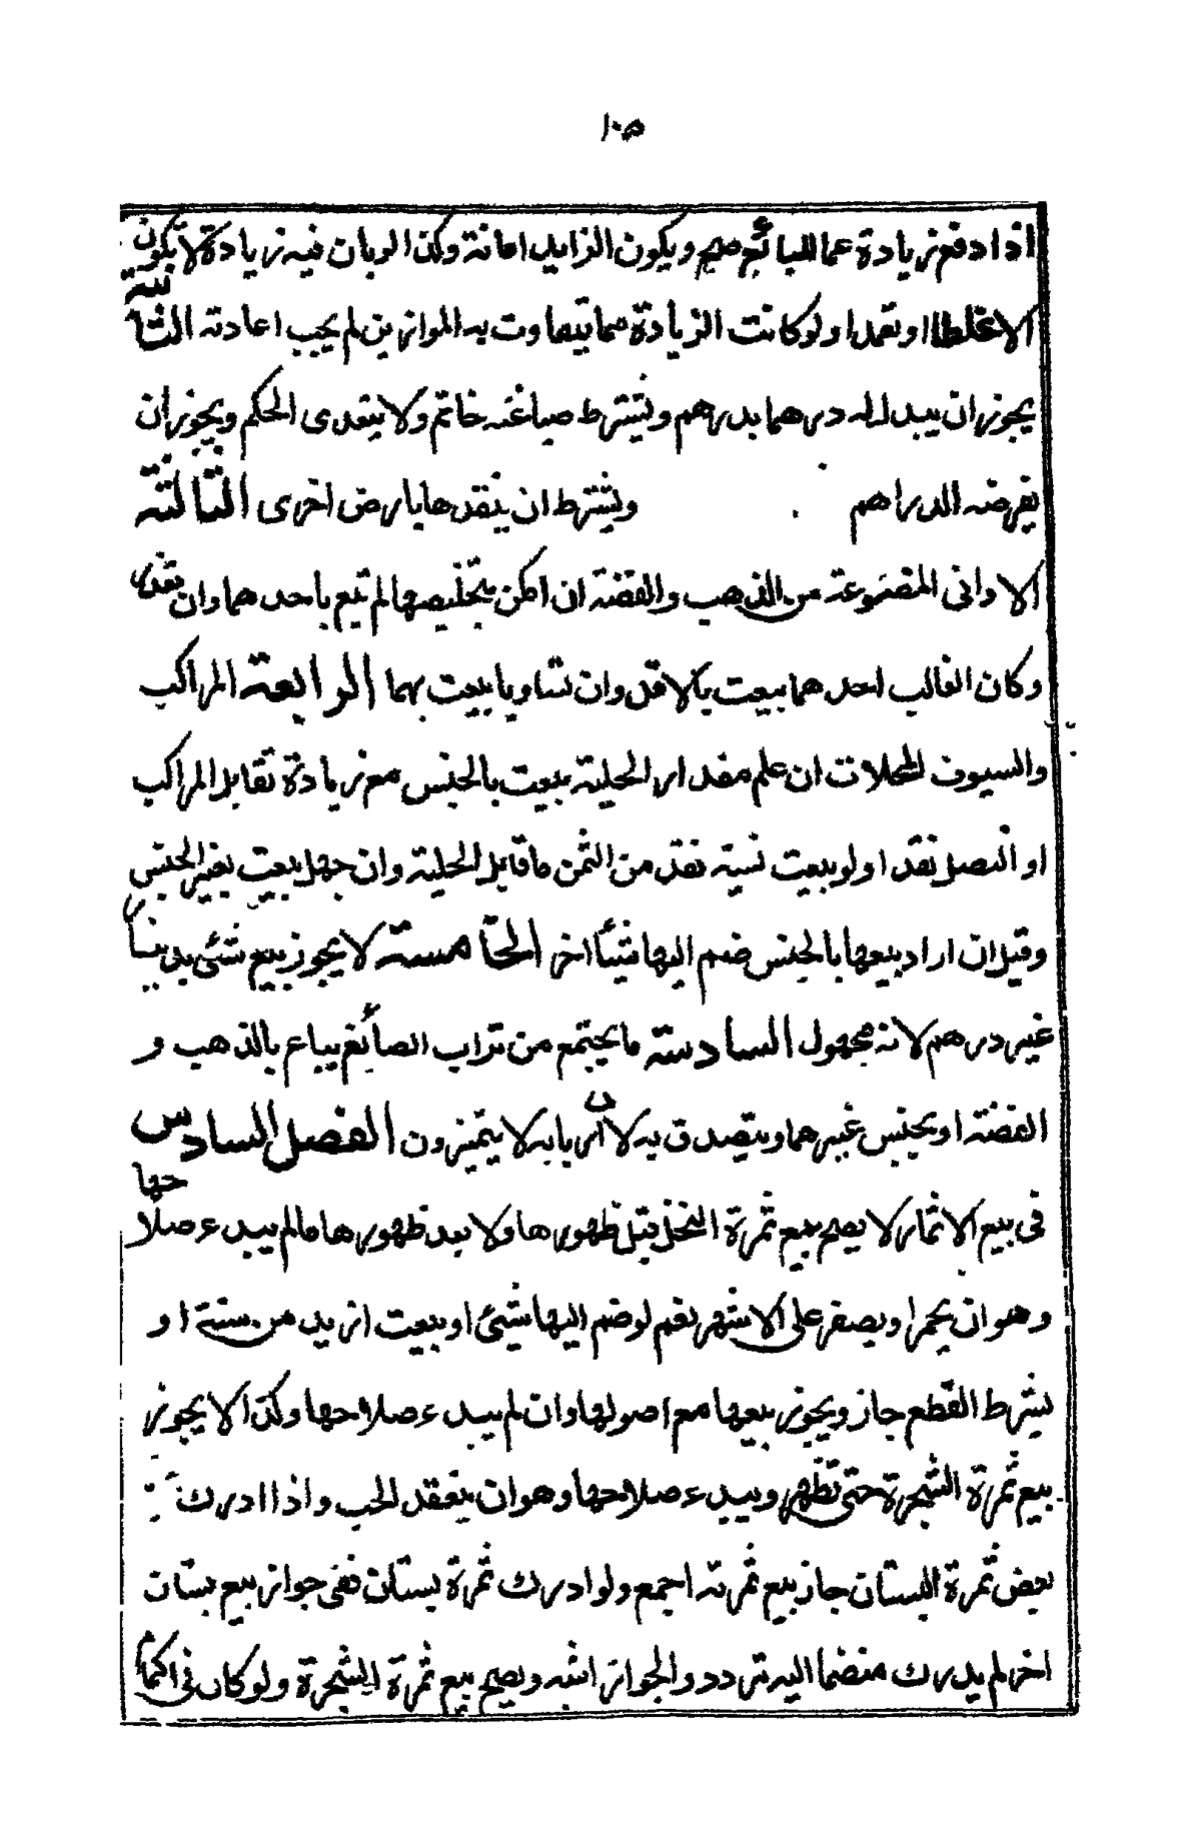 ١٠٥
اذا دفع زيادة عما للبائع صح ويكون الزايد امانة وكذا لو بان فيه زيادة لا تكون
الا غلطا او تعمدا ولو كانت الزيادة مما تتفاوت به الموازين لم يجب اعادته الثانية
يجوز ان يبدل له درهما بدرهم ويشترط صياغة خاتم ولا يتعدى الحكم ويجوز ان
يقرضه الدراهم ويشترط ان ينقدها بارض اخرى الثالثة
الاوانى المصنوعة من الذهب والفضة ان امكن تخليصهما لم تبع باحدهما وان تعذر
وكان الغالب احدهما بيعت بالاقل وان تساويا بيعت بهما الرابعة المراكب
والسيوف المحلات ان علم مقدار الحلية بيعت بالجنس مع زيادة تقابل المراكب
او النصل نقدا ولو بيعت نسية نقد من الثمن ما قابل الحلية وان جهل بيعت بغير الجنس
وقيل ان اراد بيعها بالجنس ضم اليها شيئا اخر الخامسة لا يجوز بيع شئى بدينار
غير درهم لانه مجهول السادسة ما يجتمع من تراب الصائغ يباع بالذهب و
الفضة او بجنس غيرهما ويتصدق به لان اربابه لا يتميزون الفصل السادس
فى بيع الاثمار لا يصح بيع ثمرة النخل قبل ظهورها ولا بعد ظهورها ما لم يبدء صلاحها
وهو ان يحمر او يصفر على الاشهر نعم لو ضم اليها شيئى او بيعت ازيد من سنة او
بشرط القطع جاز ويجوز بيعها مع اصولها وان لم يبدء صلاحها وكذا لا يجوز
بيع ثمرة الشجرة حتى تظهر ويبدء صلاحها وهو ان ينعقد الحب واذا ادرك
بعض ثمرة البستان جاز بيع ثمرته اجمع ولو ادرك ثمرة بستان ففى جواز بيع بستان
اخر لم يدرك منضما اليه تردد والجواز اشبه ويصح بيع ثمرة الشجرة ولو كان فى اكمام